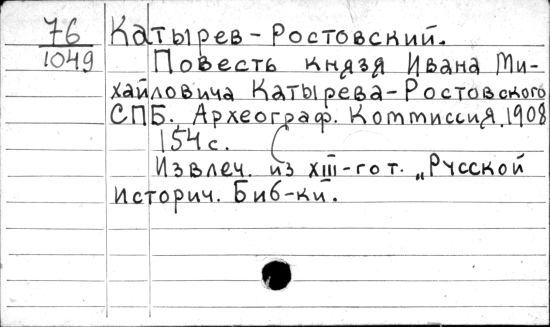 76
1049
Катырев-Ростовский.
Повесть князя Ивана Ми-
хайловича Катырева-Ростовского
СПБ. Археограф. Коммиссия, 1908
154 с.
Извлеч. из XIII-го т. „Русской
историч. Биб-ки.